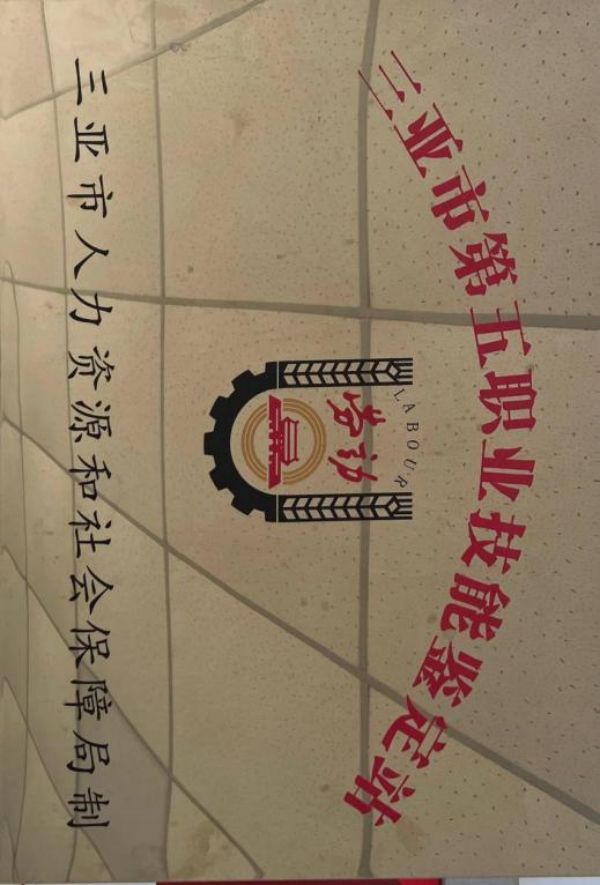 三亚市第五职业技能鉴定站
LABOUR
劳动
三亚市人力资源和社会保障局制